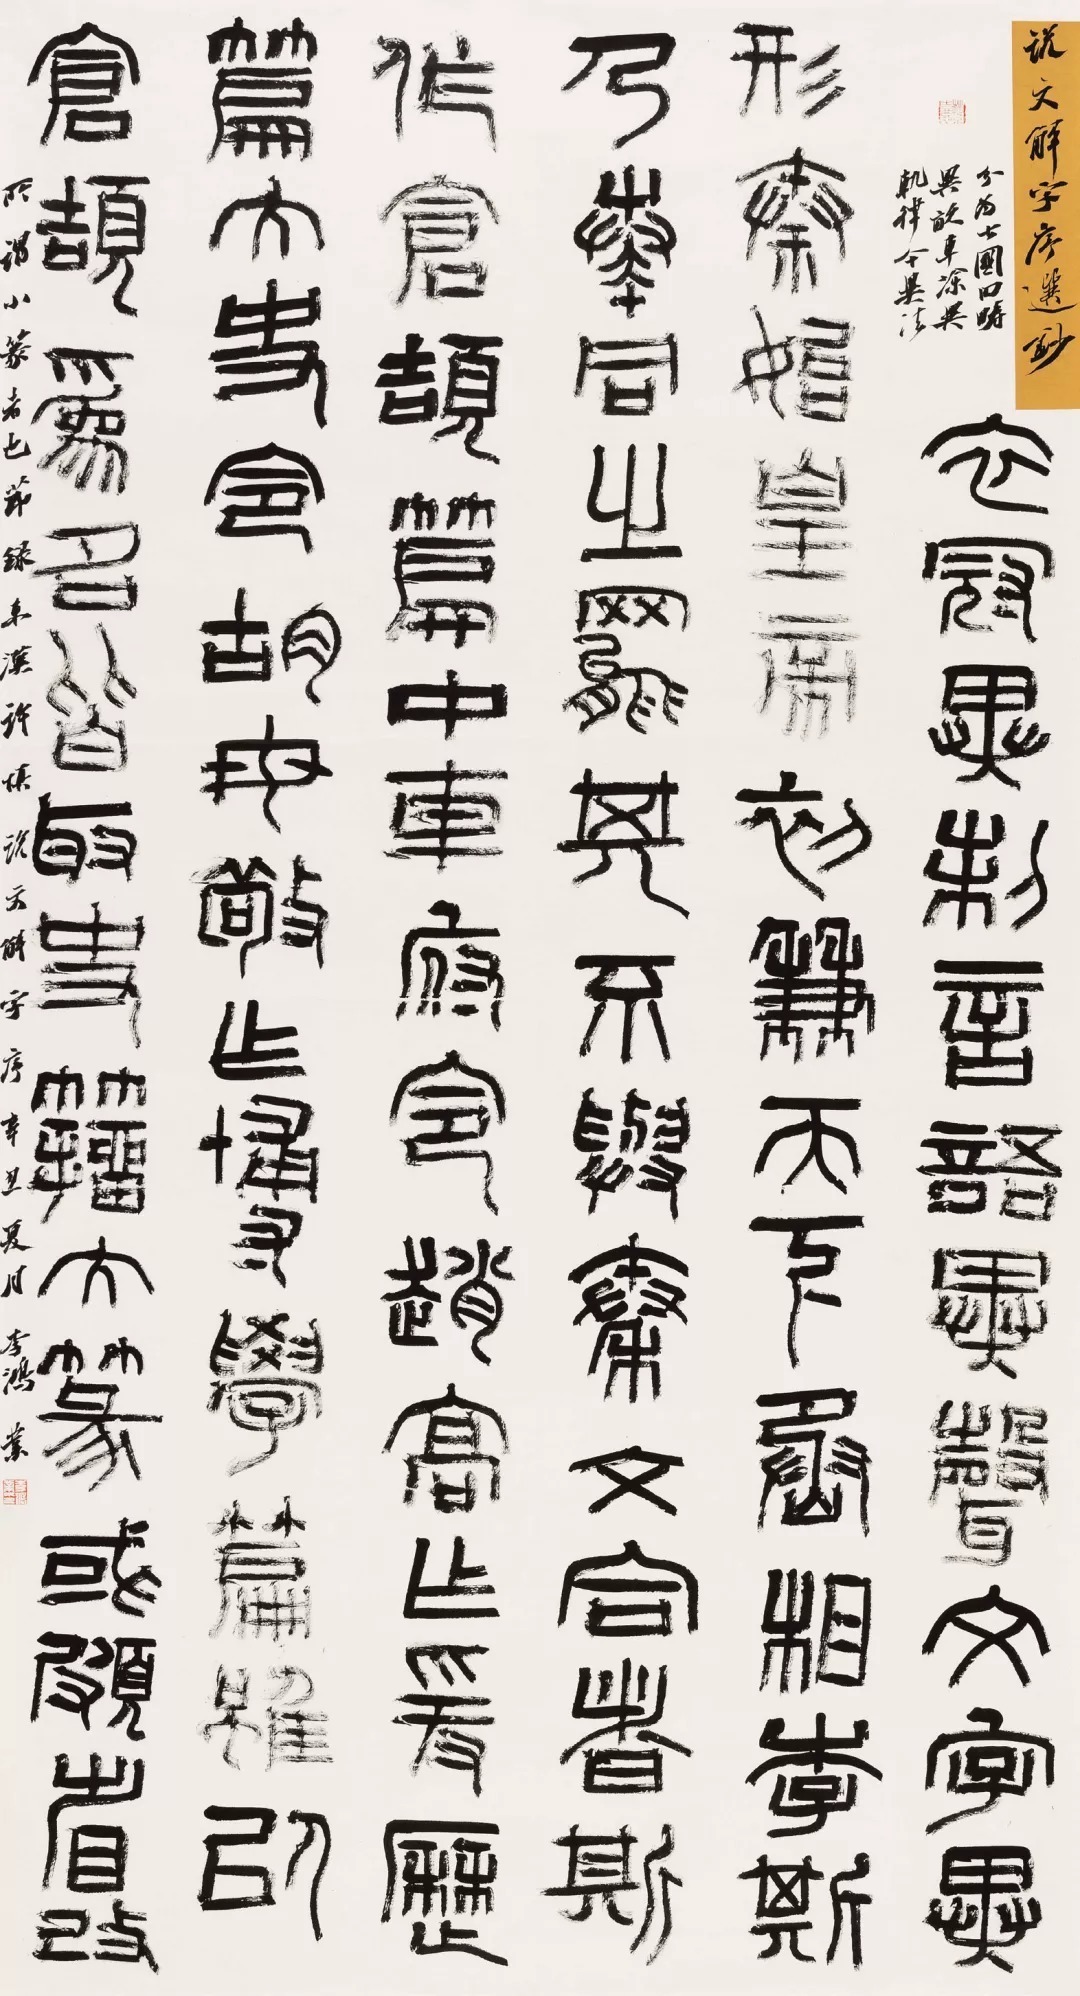 说文解字序選鈔
分為七國田疇
異畝車涂異
軌律令異法
衣冠異制言語異聲文字異
形秦始皇帝初兼天下丞相李斯
乃奏同之罷其不與秦文合者斯
作倉頡篇中車府令趙高作爰歷
篇大史令胡毋敬作博學篇雖以
倉頡為名皆取史籀大篆或頗省改
所謂小篆者也節録東漢許慎說文解字序辛丑夏月李鴻業